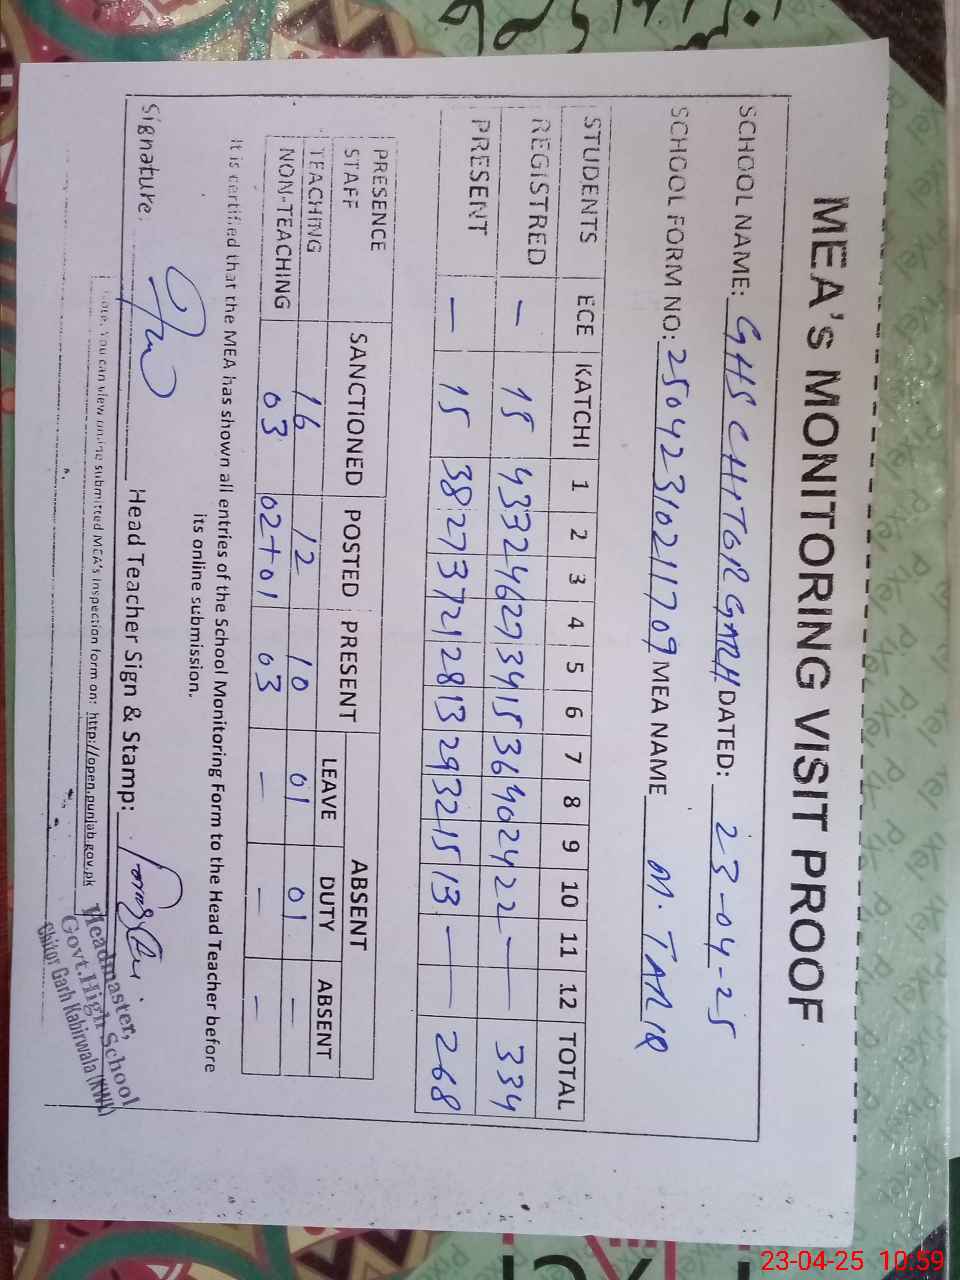 MEA's MONITORING VISIT PROOF
SCHOOL NAME: GHS CHITOR GARH DATED: 23-04-25
SCHOOL FORM NO: 25042310211709 MEA NAME M. TARIQ
STUDENTS ECE KATCHI 1 2 3 4 5 6 7 8 9 10 11 12 TOTAL
REGISTRED — 15 43 32 46 27 34 15 36 40 24 22 — — 334
PRESENT — 15 38 27 37 21 28 13 29 32 15 13 — — 268
PRESENCE STAFF SANCTIONED POSTED PRESENT ABSENT
LEAVE DUTY ABSENT
TEACHING 16 12 10 01 01 —
NON-TEACHING 03 02+01 03 — — —
It is certified that the MEA has shown all entries of the School Monitoring Form to the Head Teacher before
its online submission.
Signature: Head Teacher Sign & Stamp:
Note. You can view online submitted MEA's Inspection form on: http://open.punjab.gov.pk
Headmaster,
Govt. High School
Chitor Garh Kabirwala (KWL)
23-04-25 10:59